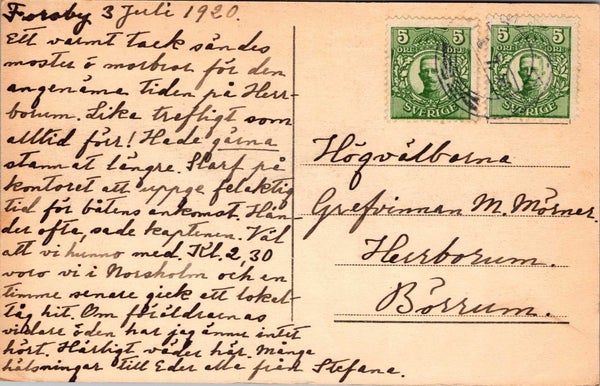 Forsby 3 Juli 1920.
Ett varmt tack sändes
moster o morbror för den
angenäma tiden på Herr-
borum. Lika trefligt som
alltid förr! Hade gärna
stannat längre. Slarf på
kontoret att uppge felaktig
tid för båtens ankomst. Hän-
der ofta, sade kaptenen. Väl
att vi hunno med. Kl. 2,30
voro vi i Norsholm och en
timme senare gick ett lokal-
tåg hit. Om föräldrarnas
vidare öden har jag ännu intet
hört. Härligt väder här. Många
hälsningar till Eder alla från Stefana.
5 5
ÖRE ÖRE
SVERIGE
5 5
ÖRE ÖRE
SVERIGE
Högvälborna
Grefvinnan M. Mörner.
Herrborum.
Börrum.